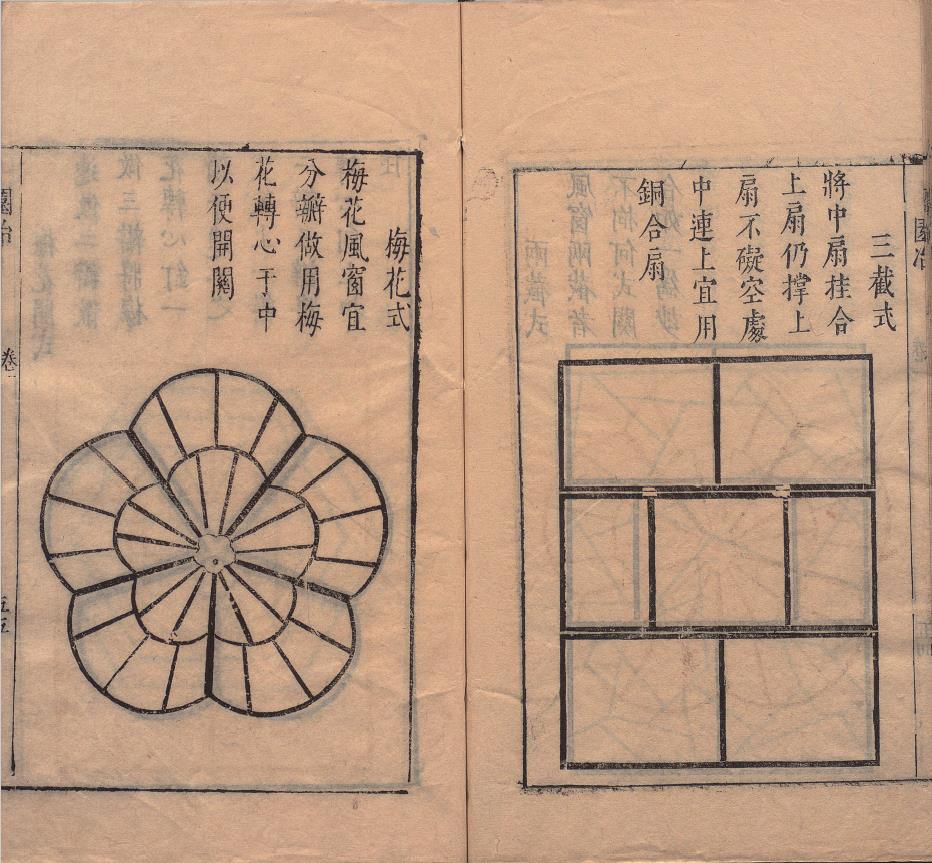 三截式
將中扇挂合
上扇仍撐上
扇不礙空處
中連上宜用
銅合扇
梅花式
梅花風窗宜
分瓣做用梅
花轉心于中
以便開關
園冶
卷一